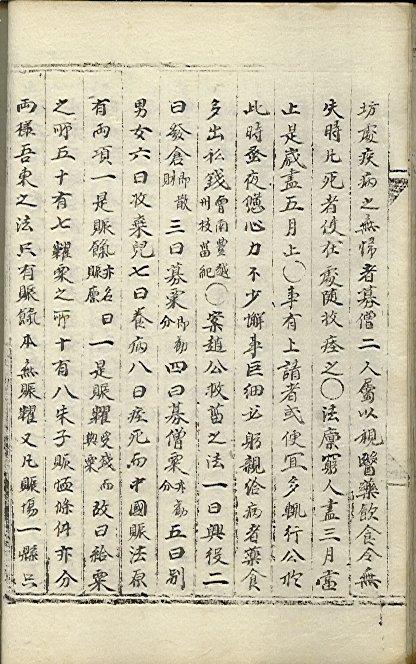 坊處疾病之無歸者募僧二人屬以視醫藥飲食令無
失時凡死者使在處随收瘞之○法廪窮人盡三月當
止是歲盡五月上○事有上請者或便宜多輒行公於
此時蚤夜憊心力不少懈事巨細必躬親給病者藥食
多出私錢曾南豊越州救菑記○案趙公救菑之法一曰興役二
曰發倉即散財三曰募粟即勸分四曰募僧粟亦勸分五曰別
男女六曰收棄兒七曰養病八曰瘞死而中國賑法原
有兩項一是賑餼亦名賑廪曰一是賑糶受錢而與粟故曰給粟
之所五十有七糶粟之所十有八朱子賑恤條件亦分
両樣吾東之法只有賑餼本無賑糶又凡賑場一縣只